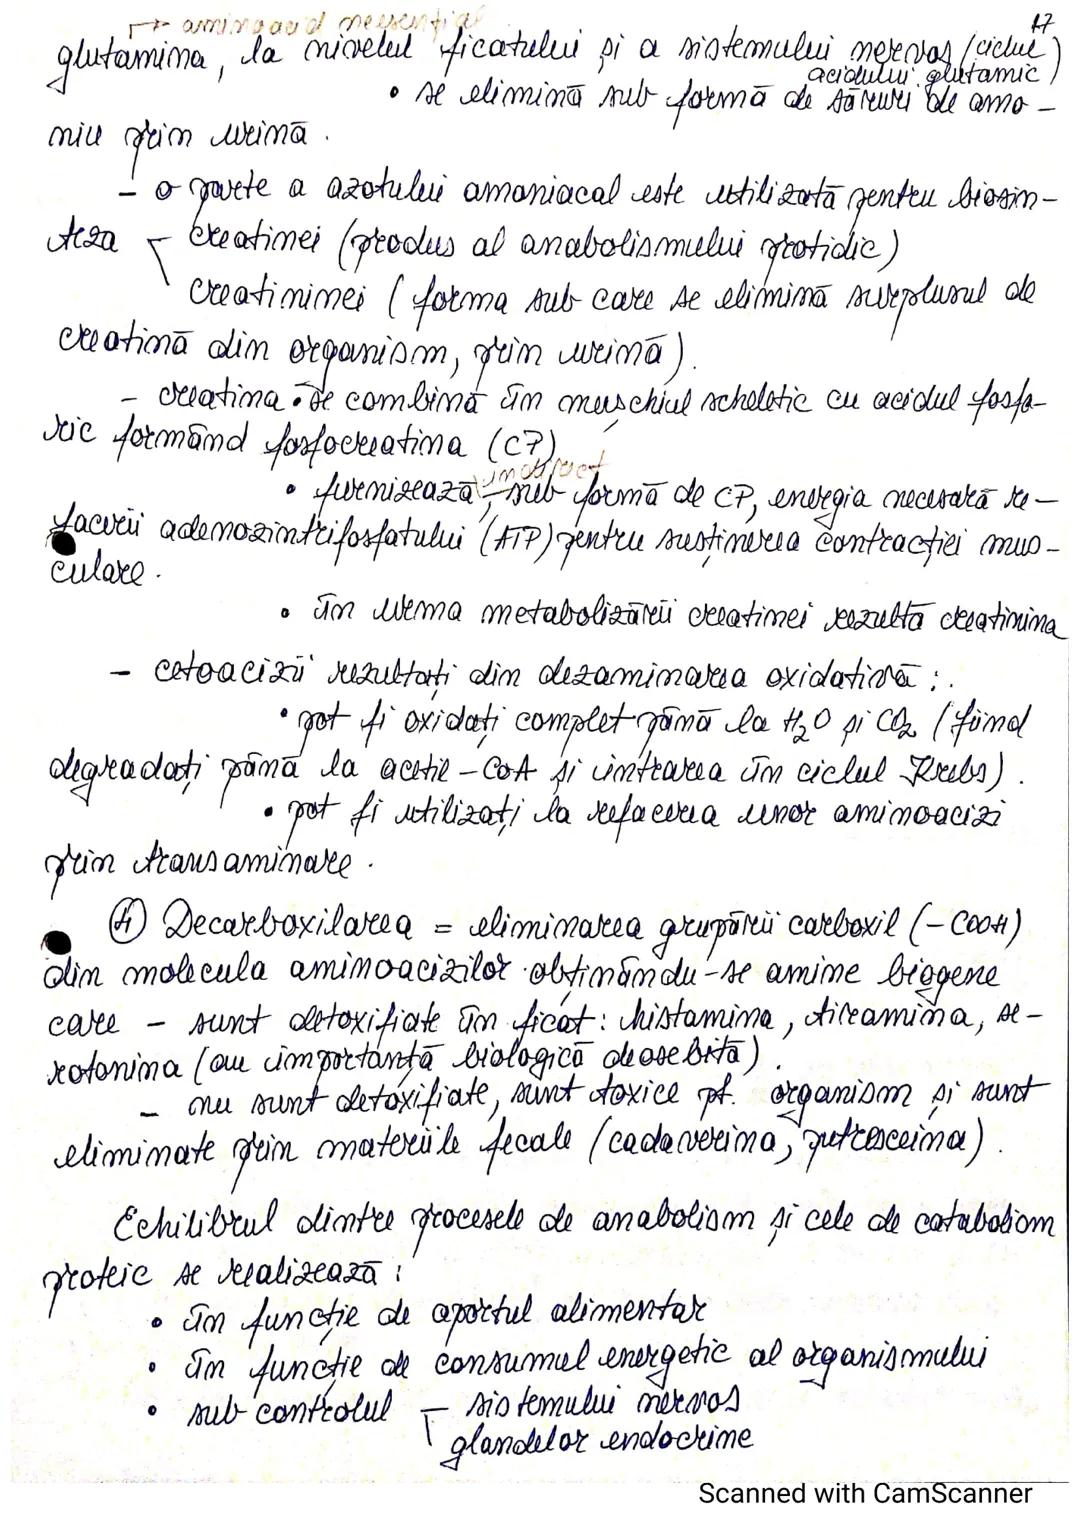 17
→ aminoacid neesențial
glutamina, la nivelul ficatului și a sistemului nervos (ciclul
acidului glutamic)
• se elimină sub formă de săruri de amo-
niu prin urină.
- o parte a azotului amoniacal este utilizată pentru biosin-
teza creatinei (produs al anabolismului protidic)
creatininei (forma sub care se elimină surplusul de
creatină din organism, prin urină).
- creatina • se combină în mușchiul scheletic cu acidul fosfo-
ric formând fosfocreatina (CP)
indirect
• furnizează, sub formă de CP, energia necesară re-
facerii adenozintrifosfatului (ATP) pentru susținerea contracției mus-
culare.
• în urma metabolizării creatinei rezultă creatinina
- cetoacizii rezultați din dezaminarea oxidativă :.
• pot fi oxidați complet până la H₂O și CO₂ (fiind
degradați până la acetil-CoA și intrarea în ciclul Krebs).
• pot fi utilizați la refacerea unor aminoacizi
prin transaminare.
④ Decarboxilarea = eliminarea grupării carboxil (-COOH)
din molecula aminoacizilor obținându-se amine biogene
care - sunt detoxifiate în ficat: histamina, tiramina, se-
rotonina (au importanță biologică deosebită).
- nu sunt detoxifiate, sunt toxice pt. organism și sunt
eliminate prin materiile fecale (cadaverina, putresceina).
Echilibrul dintre procesele de anabolism și cele de catabolism
proteic se realizează :
• în funcție de aportul alimentar
• în funcție de consumul energetic al organismului
• sub controlul - sistemului nervos
glandelor endocrine
Scanned with CamScanner